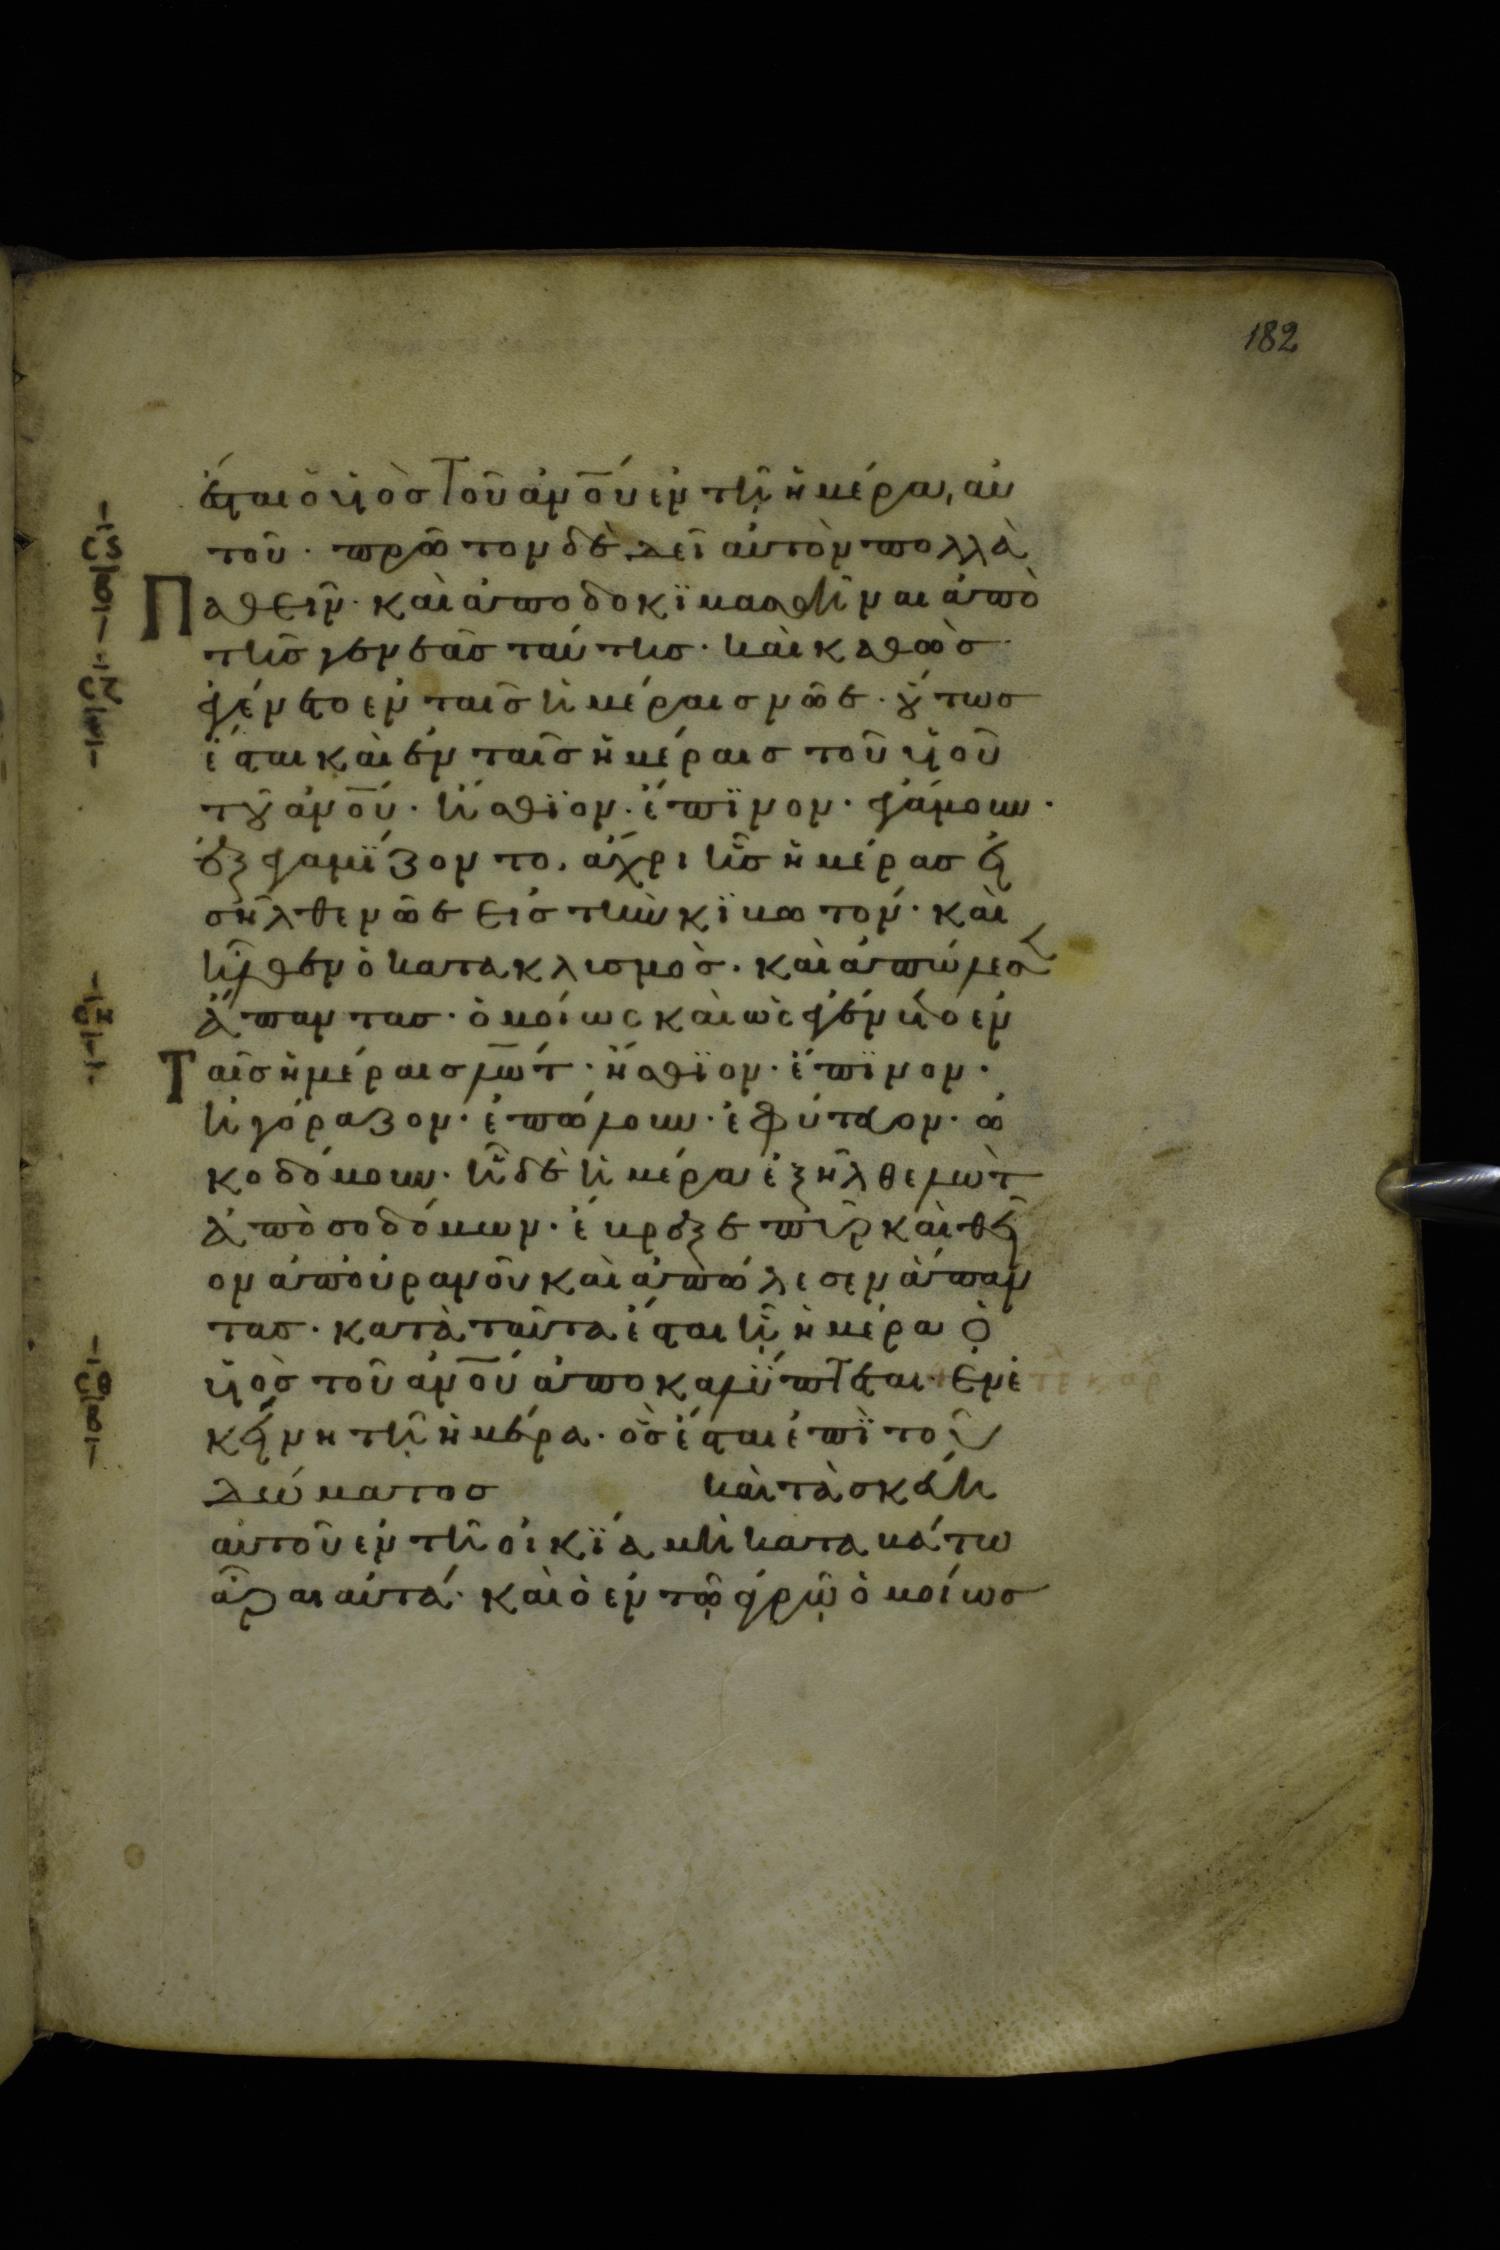 182
ἔσται ὁ υἱὸσ τοῦ ἀνου ἐν τῆ ἡμέρα, αὐ
τοῦ · πρῶτον δὲ δεῖ αὐτὸν πολλὰ
Παθεῖν · καὶ ἀποδοκϊμασθῆναι ἀπὸ
τῆσ γενεᾶσ ταύτησ · καὶ καθὼσ
ἐγένετο ἐν ταῖσ ἡμέραισ νῶε · οὕτωσ
ἔσται καὶ ἐν ταῖσ ἡμέραισ τοῦ υἱοῦ
τοῦ ἀνου · ἤσθϊον · ἔπϊνον · ἐγάμουν ·
ἐξεγαμΐζοντο, ἄχρι ἧσ ἡμέρασ εἰ
σῆλθε νῶε εἰσ τὴν κϊβωτόν · καὶ
ἦλθεν ὁ κατακλισμὸσ · καὶ ἀπώλεσεν
ἅπαντασ · ὁμοίωσ καὶ ὡσ ἐγένετο ἐν
Ταῖσ ἡμέραισ λώτ · ἤσθϊον · ἔπϊνον ·
ἠγόραζον · ἐπώλουν · ἐφύτευον · ὠ
κοδόμουν · ἧ δὲ ἡμέρα ἐξῆλθε λὼτ
ἀπὸ σοδόμων · ἔβρεξε πῦρ καὶ θεῖ
ον ἀπ' οὐρανοῦ καὶ ἀπώλεσεν ἅπαν
τασ · κατὰ ταῦτα ἔσται ἧ ἡμέρα ὁ
υἱὸσ τοῦ ἀνου ἀποκαλύπτεται · ἐν ἐ
κείνη τῆ ἡμέρα · ὃσ ἔσται ἐπῒ τοῦ
δώματοσ καὶ τὰ σκεύη
αὐτοῦ ἐν τῆ οἰκϊα μὴ καταβάτω
ἆραι αὐτά · καὶ ὁ ἐν τῶ ἀγρῶ ὁμοίωσ